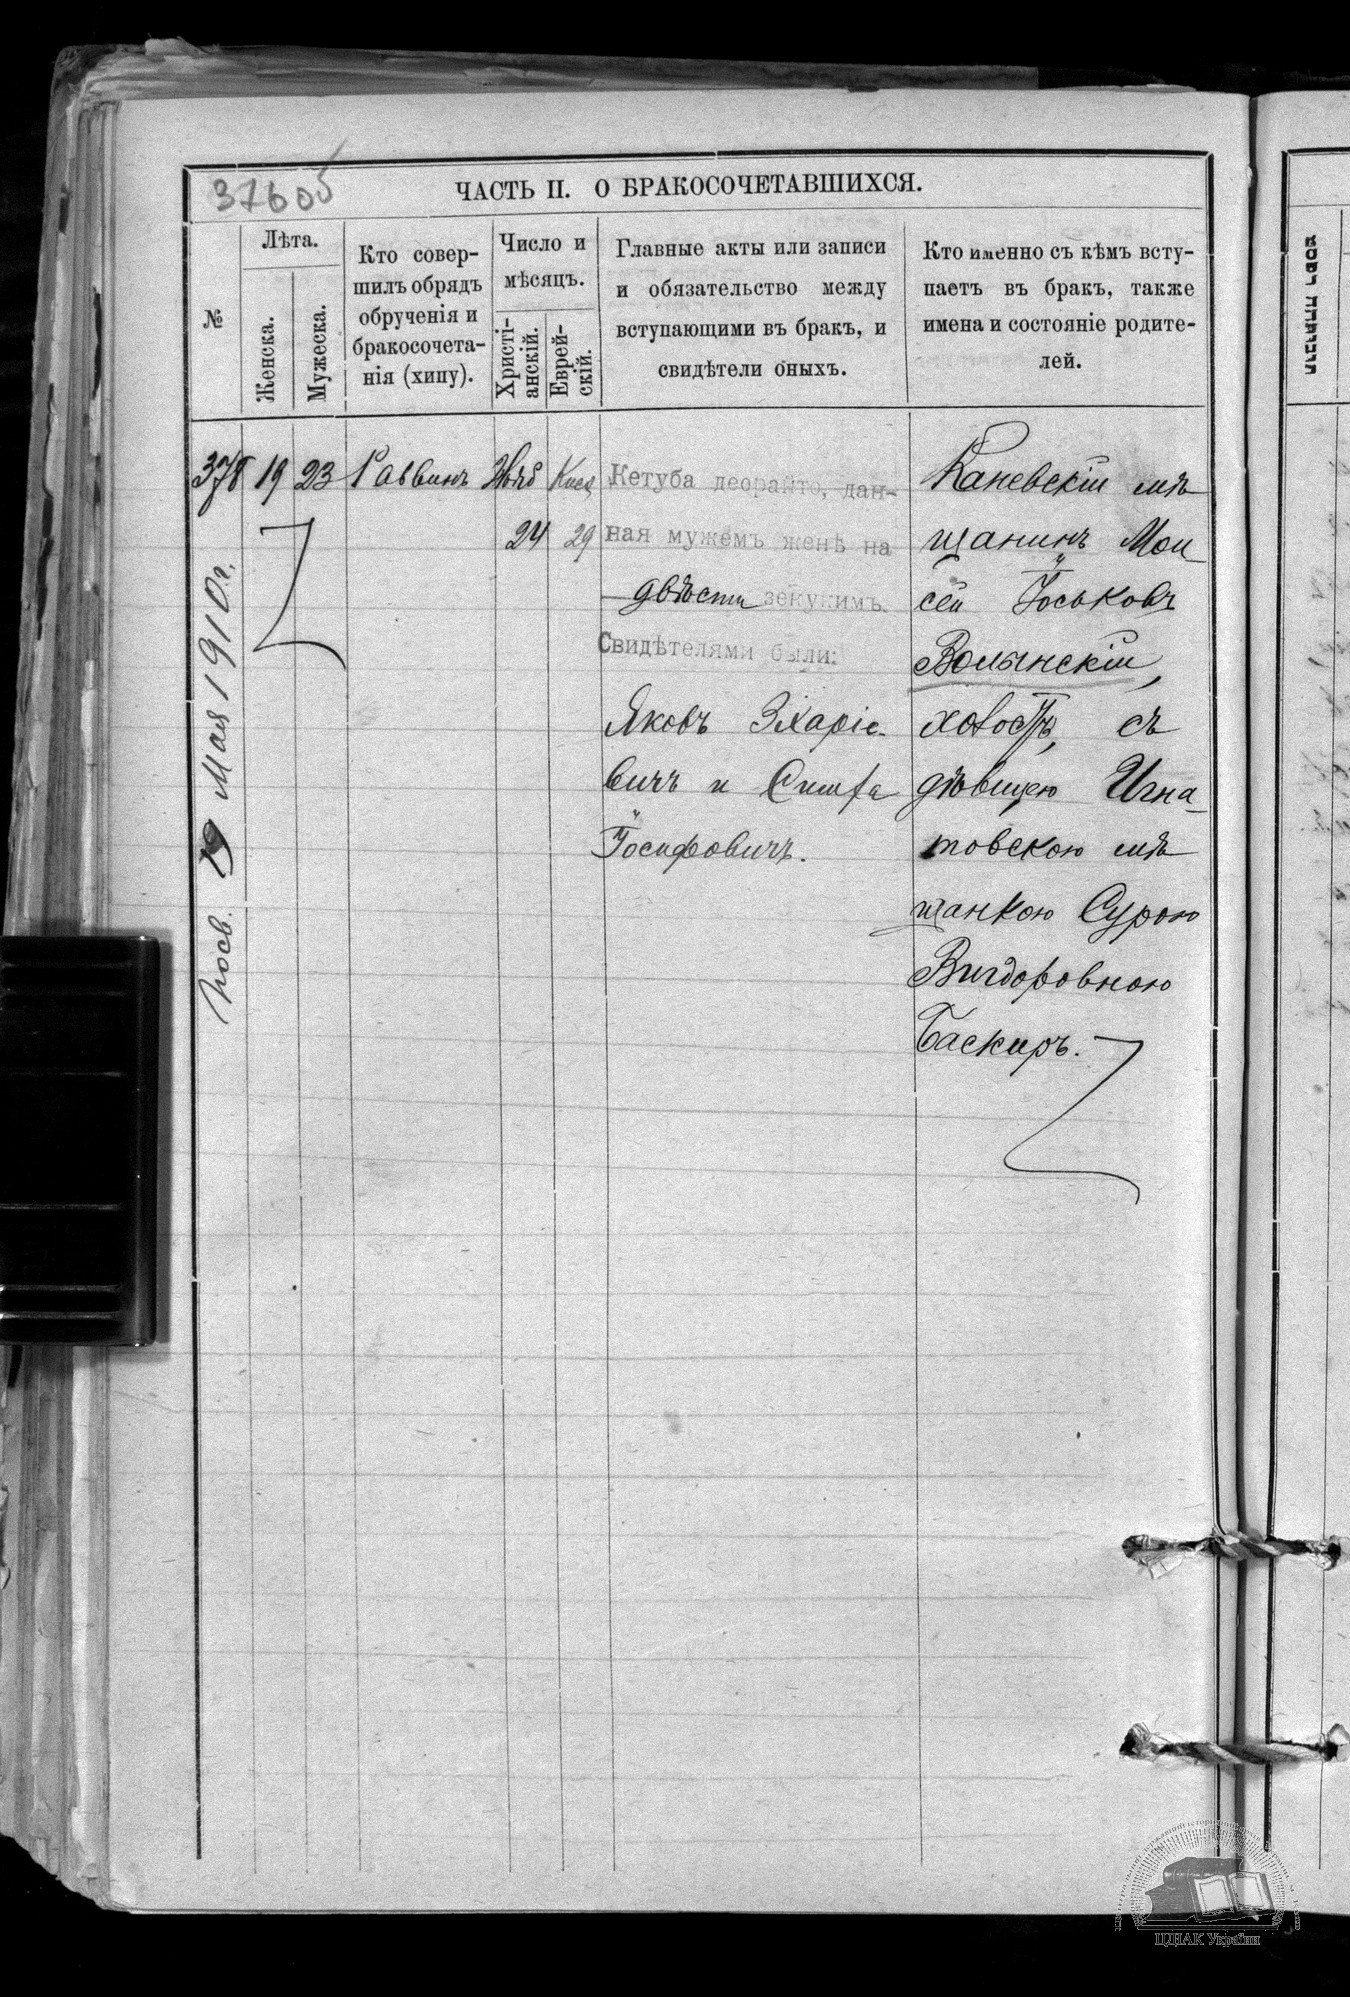 376 об
ЧАСТЬ II. О БРАКОСОЧЕТАВШИХСЯ.
№
Лѣта.
Женска.
Мужеска.
Кто совер-
шилъ обрядъ
обрученія и
бракосочета-
нія (хипу).
Число и
мѣсяцъ.
Христі-
анскій.
Еврей-
скій.
Главные акты или записи
и обязательство между
вступающими въ бракъ, и
свидѣтели оныхъ.
Кто именно съ кѣмъ всту-
паетъ въ бракъ, также
имена и состояніе родите-
лей.
378
19
23
Раввинъ
24
29
Кетуба деорайто, дан-
ная мужемъ женѣ на
двѣсти зекукимъ.
Свидѣтелями были:
Яковъ Зхаріе-
вичъ и Симха
Іосифовичъ.
Каневскій мѣ
щанинъ Мои
сей Іоськовъ
Волынскій,
холостъ, съ
дѣвицею Игна-
товскою мѣ
щанкою Сурою
Вигдоровною
Баскиръ.
19 Мая 1910 г.
ЦДІАК України